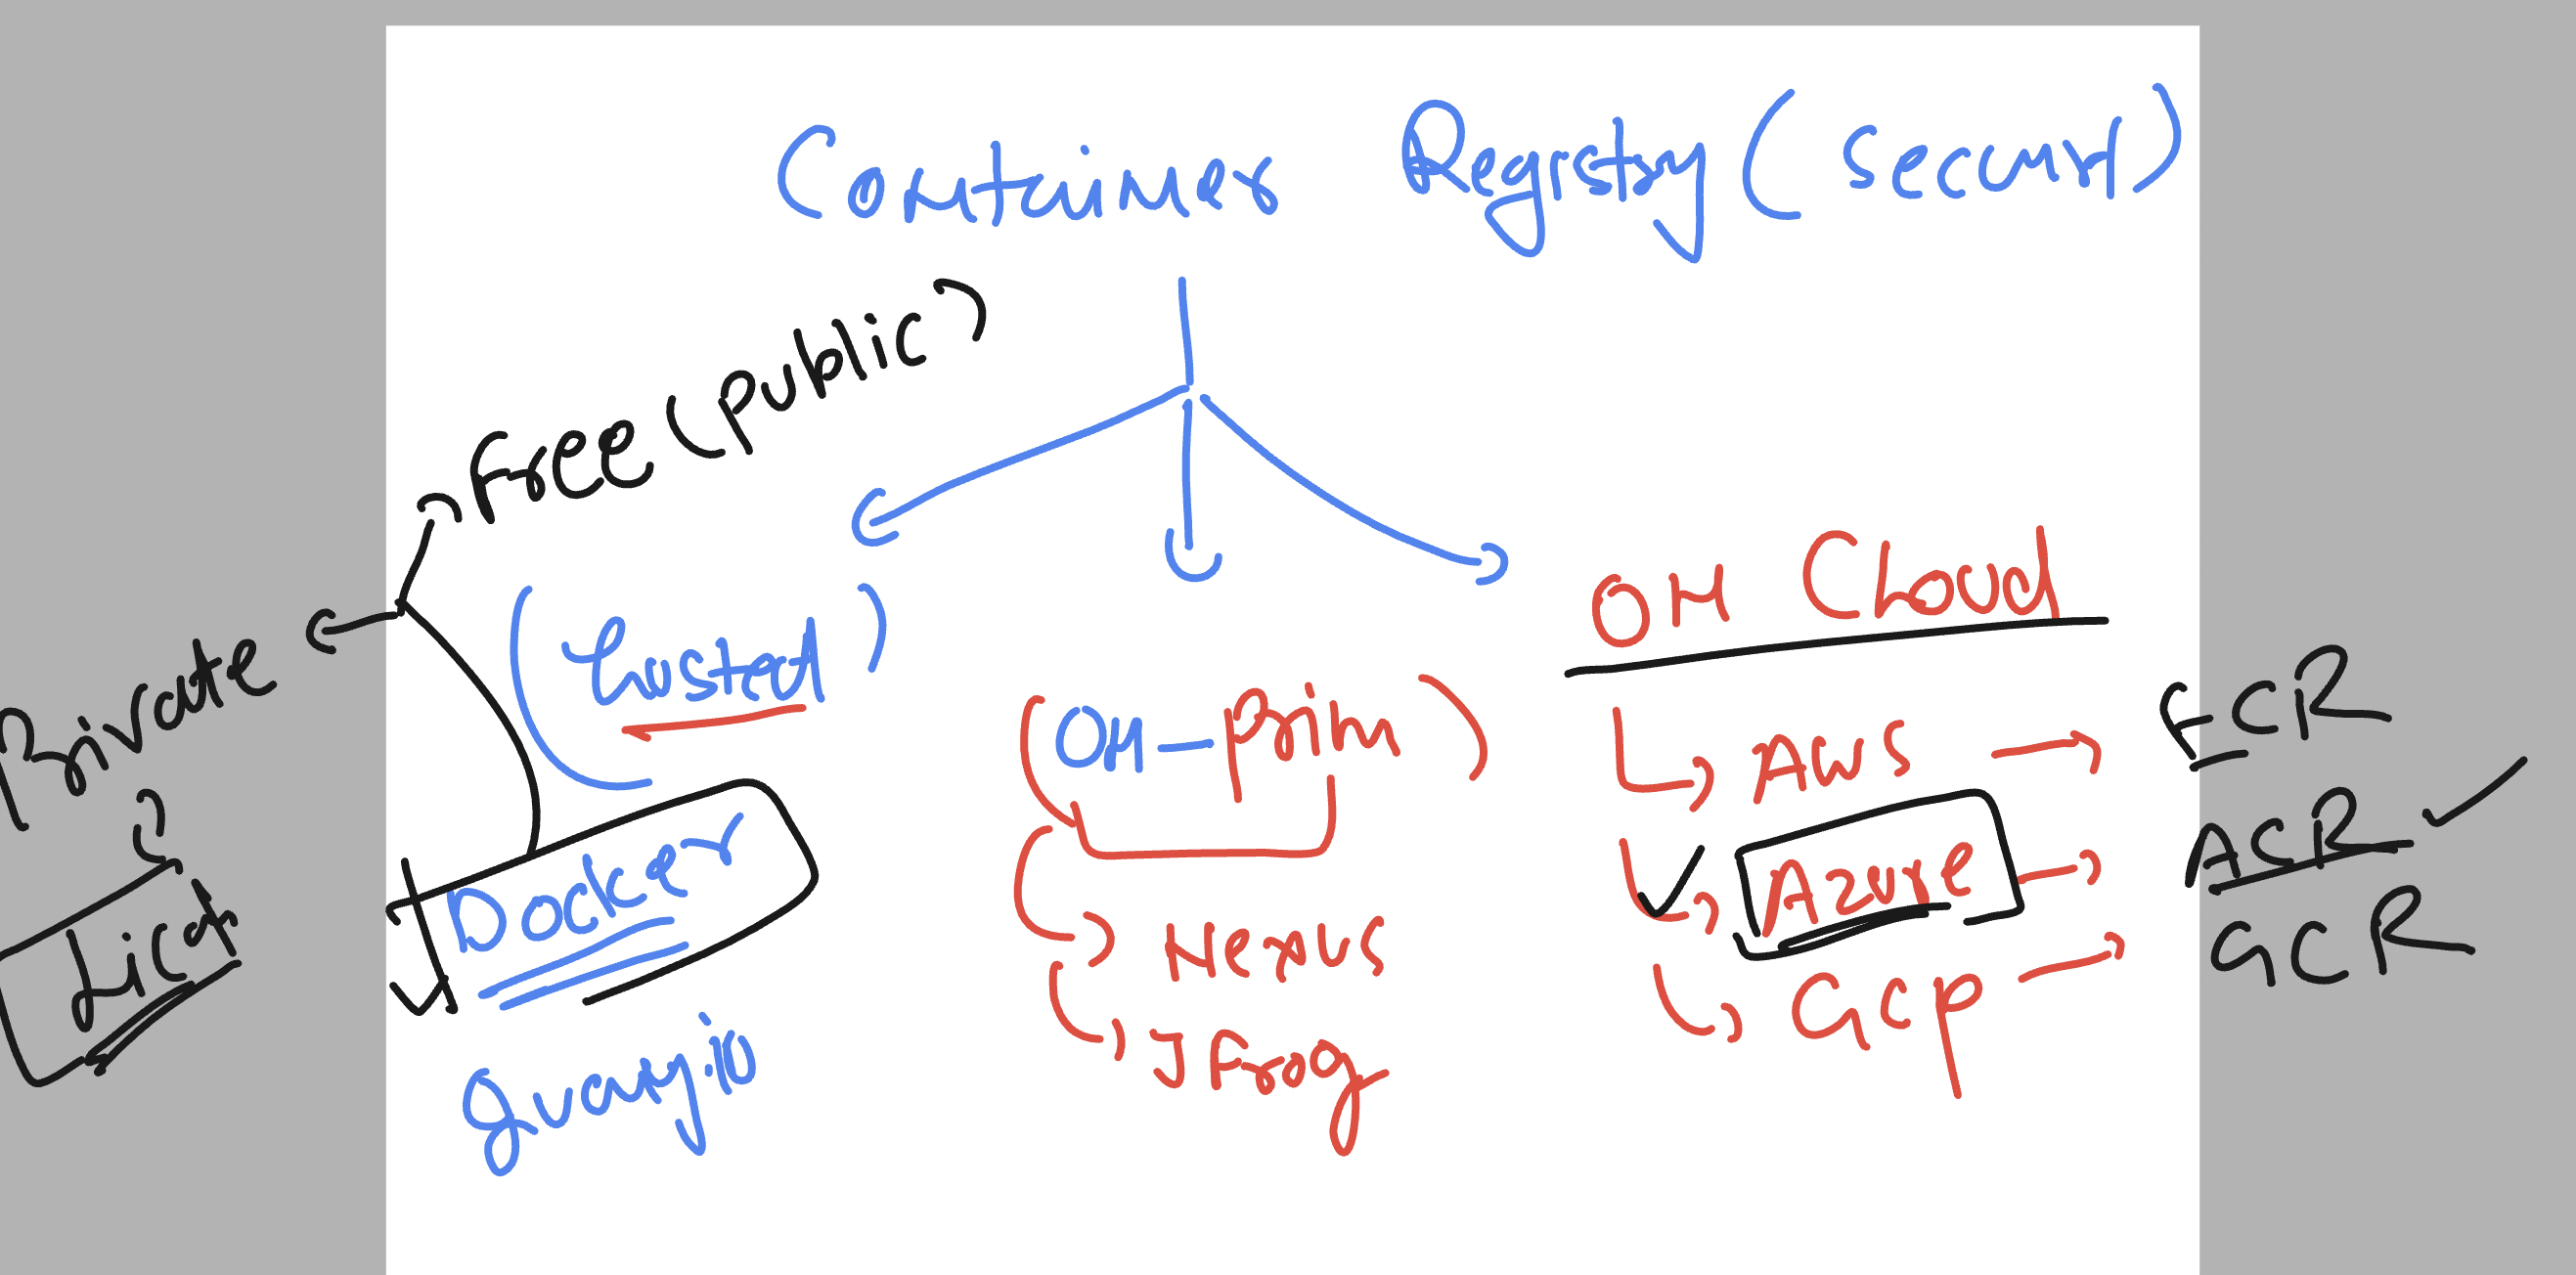 Container Registry (securt)
Free (public)
Private
Lice
(hosted)
Docker
Quay.io
(ON-prim)
Nexus
JFrog
ON Cloud
AWS → ECR
Azure → ACR
GCP → GCR